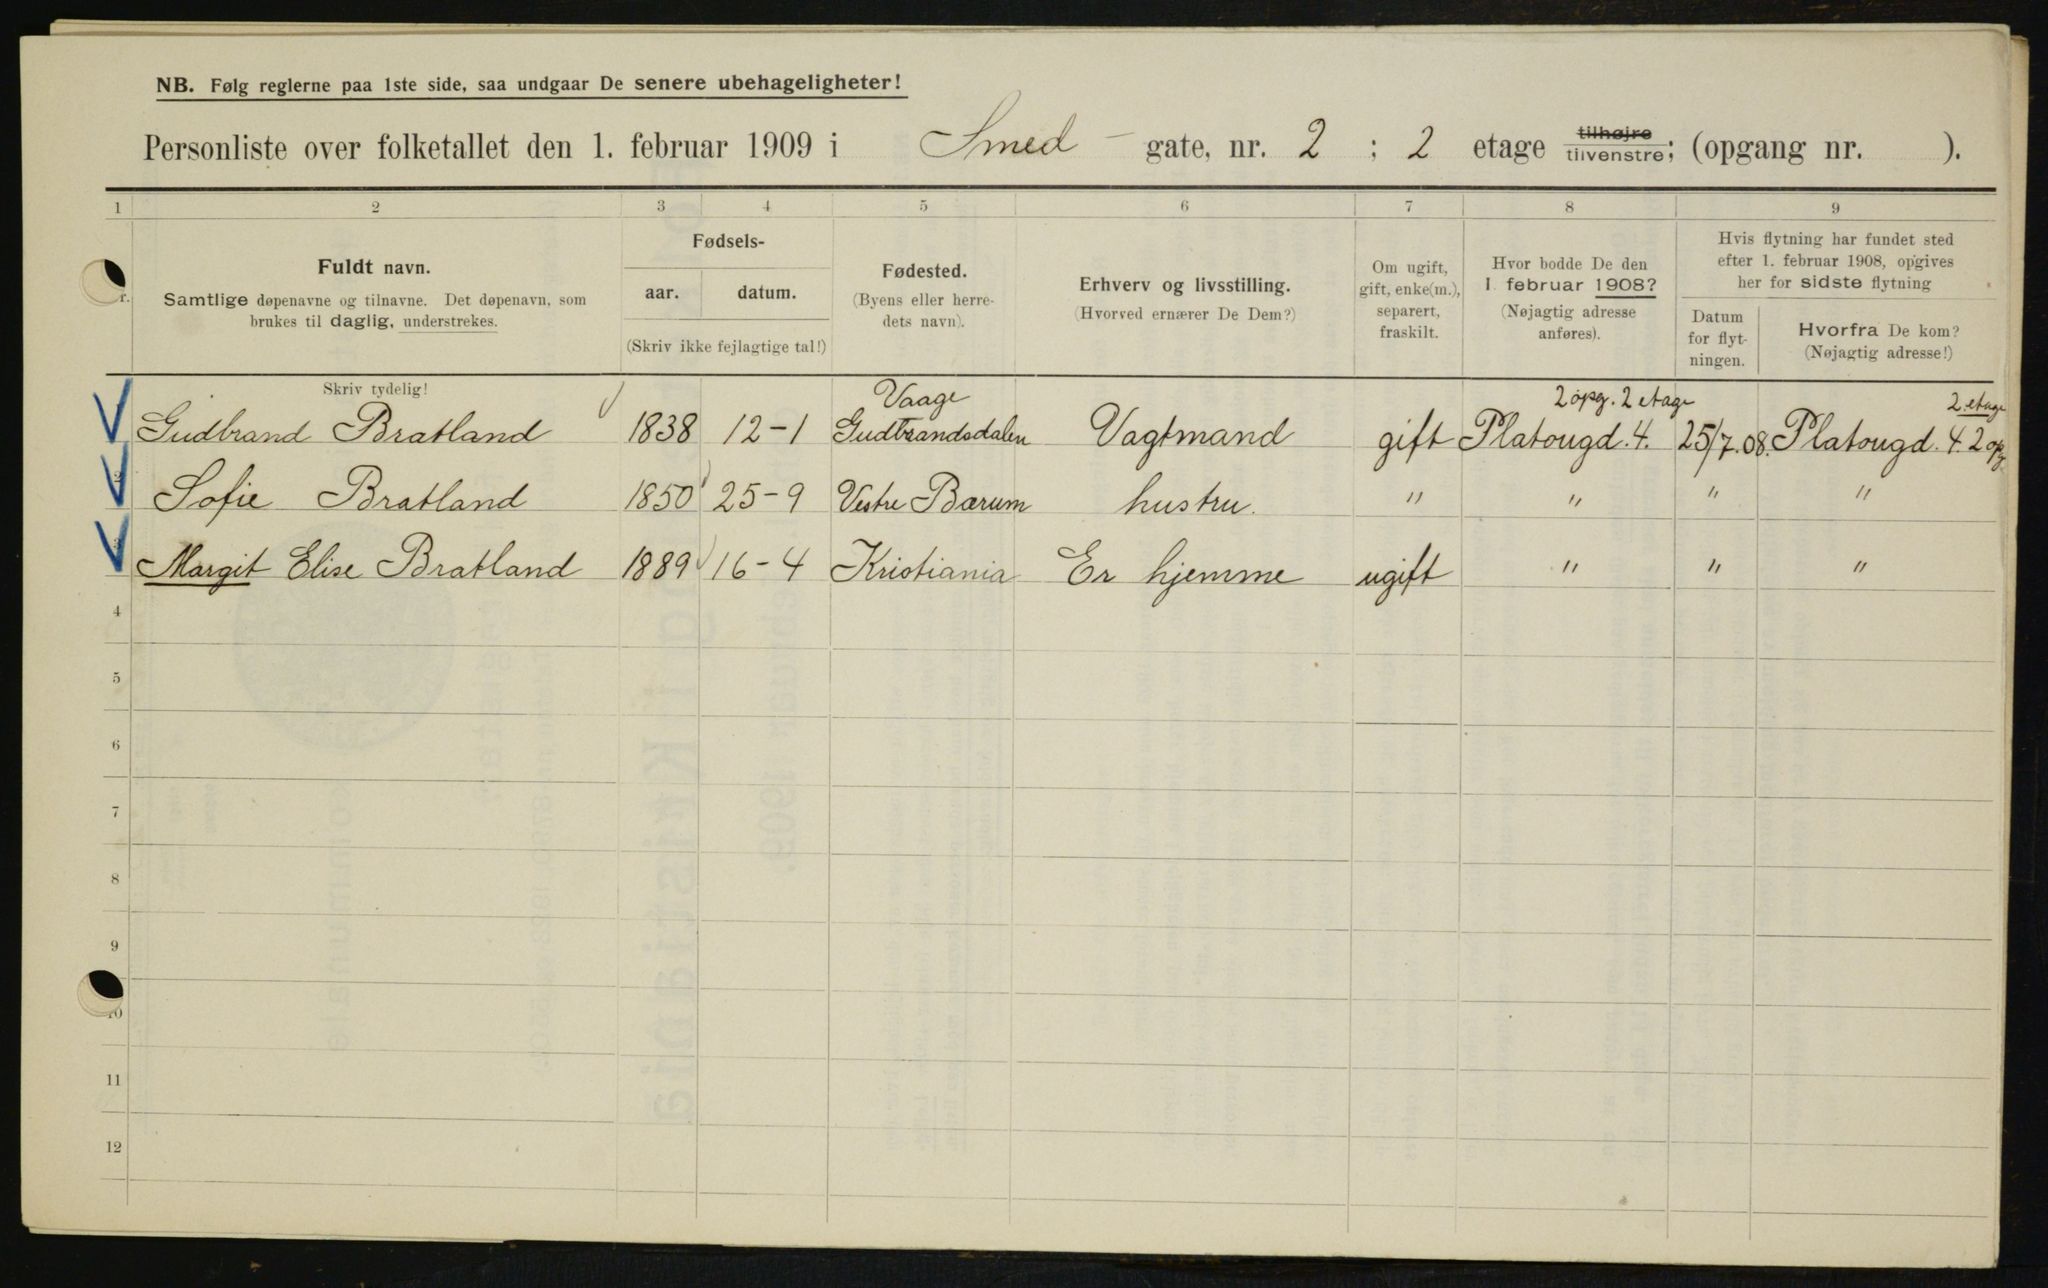 NB. Følg reglerne paa 1ste side, saa undgaar De senere ubehageligheter!
Personliste over folketallet den 1. februar 1909 i Smed - gate, nr. 2 ; 2 etage tilhøjre tilvenstre; (opgang nr. ).
1 2 3 4 5 6 7 8 9
Fuldt navn.
Samtlige døpenavne og tilnavne. Det døpenavn, som
brukes til daglig, understrekes.
Fødsels-
aar. datum.
(Skriv ikke fejlagtige tal!)
Fødested.
(Byens eller herre-
dets navn).
Erhverv og livsstilling.
(Hvorved ernærer De Dem?)
Om ugift,
gift, enke(m.),
separert,
fraskilt.
Hvor bodde De den
1. februar 1908?
(Nøjagtig adresse
anføres).
Hvis flytning har fundet sted
efter 1. februar 1908, opgives
her for sidste flytning
Datum
for flyt-
ningen.
Hvorfra De kom?
(Nøjagtig adresse!)
Skriv tydelig!
Vaage 2 opg. 2 etage 2 etage
Gudbrand Bratland 1838 12-1 Gudbrandsdalen Vagtmand gift Platougd. 4. 25/7.08. Platougd. 4. 2 opg
2 Sofie Bratland 1850 25-9 Vestre Bærum hustru. " " " "
3 Margit Elise Bratland 1889 16-4 Kristiania Er hjemme ugift " " "
4
5
6
7
8
9
10
11
12